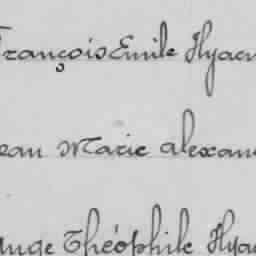 François Emile Hyac
ean Marie alexan
ange Théophile Hya